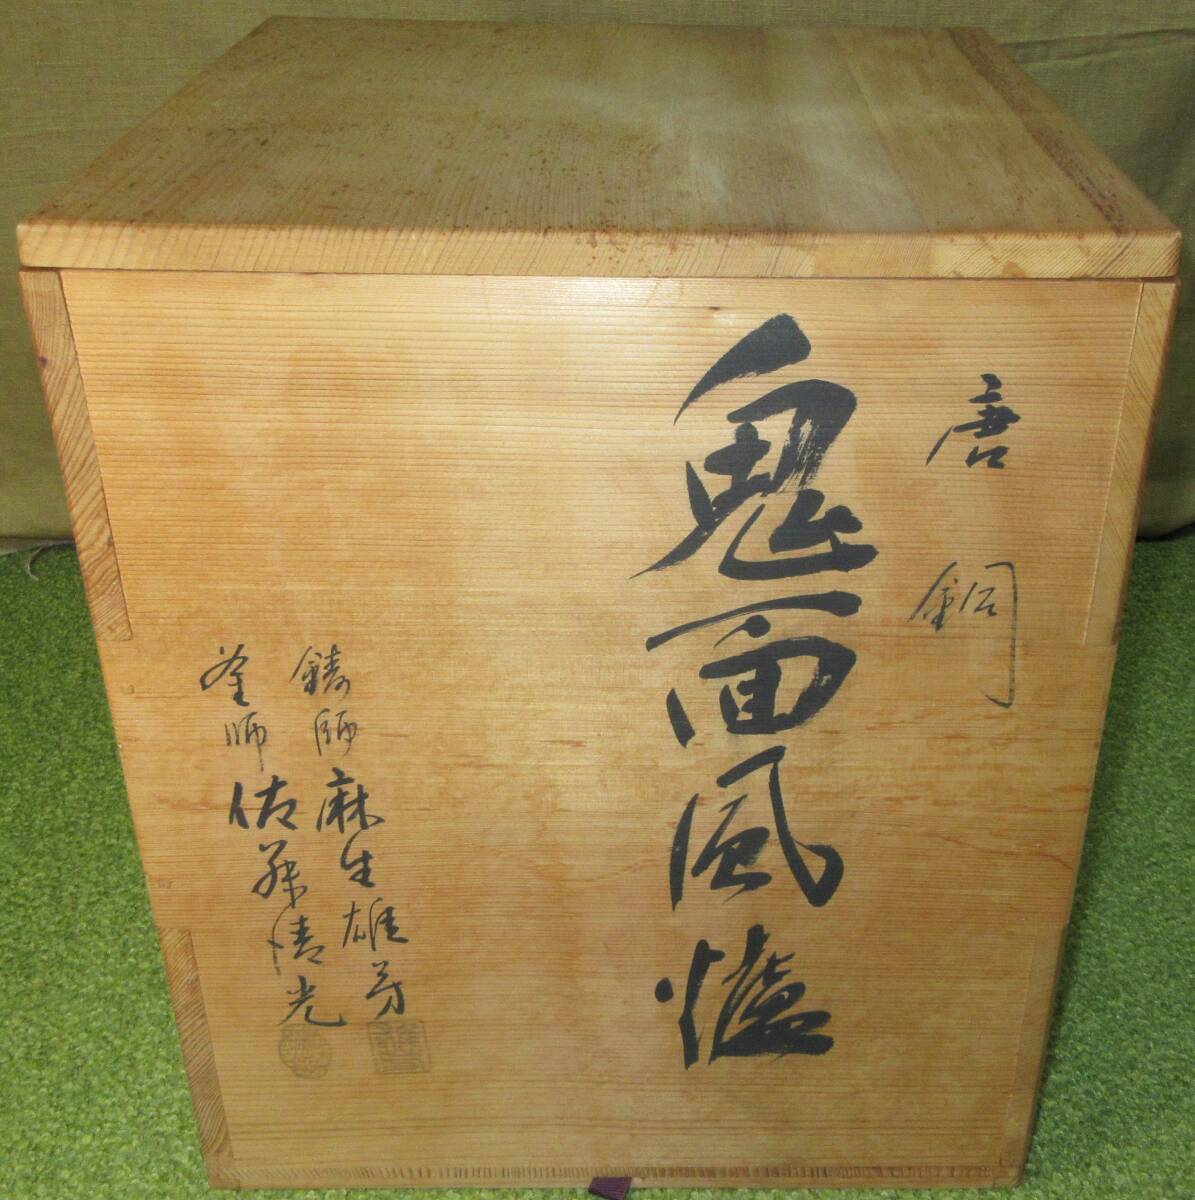 唐銅
鬼面風爐
鋳師 麻生雄芳
釜師 佐藤清光